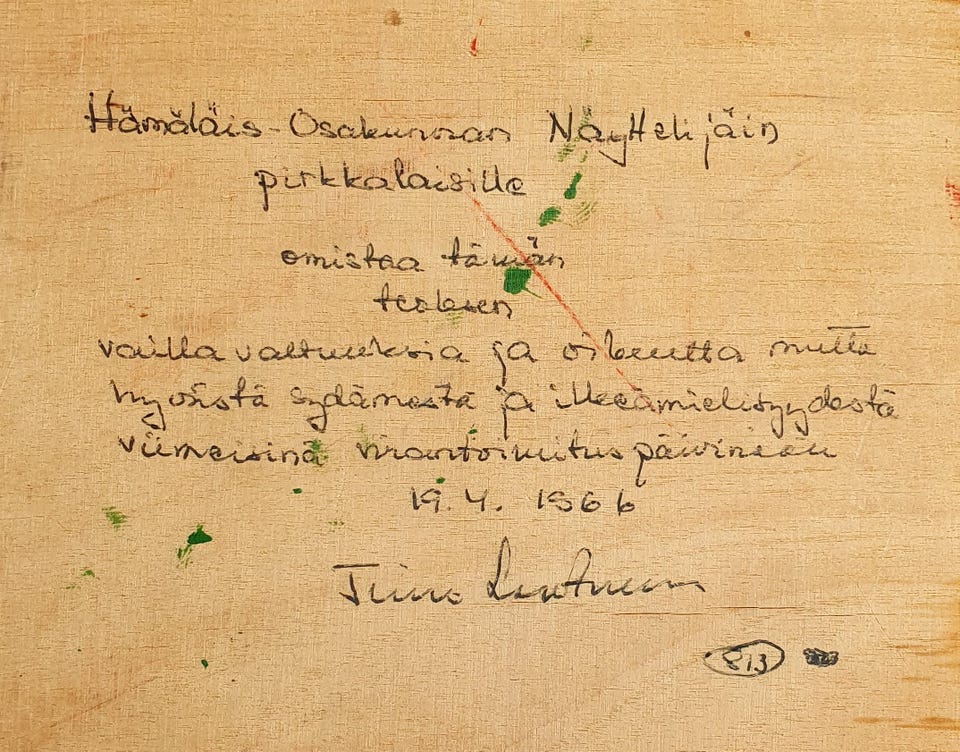 Hämäläis-Osakunnan Näyttelijäin
pirkkalaisille
omistaa tämän
teoksen
vailla valtuuksia ja oikeutta mutta
hyvästä sydämestä ja ilkeämielisyydestä
viimeisinä virantoimituspäivinään
19.4. 1966
813